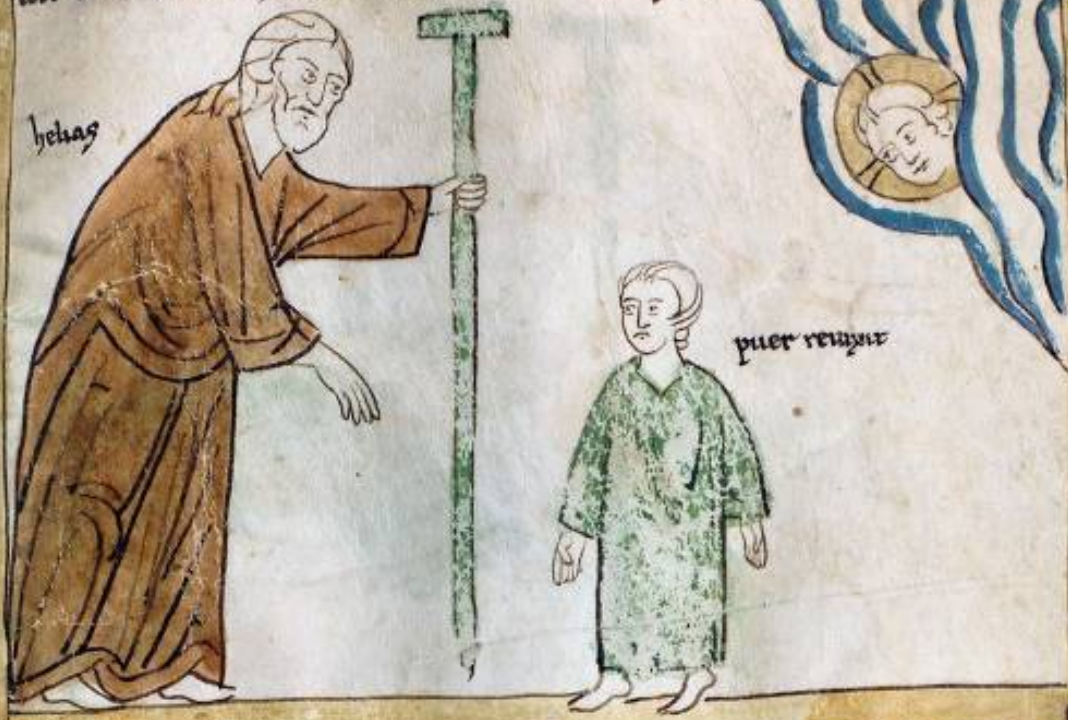 helias
puer reuixit